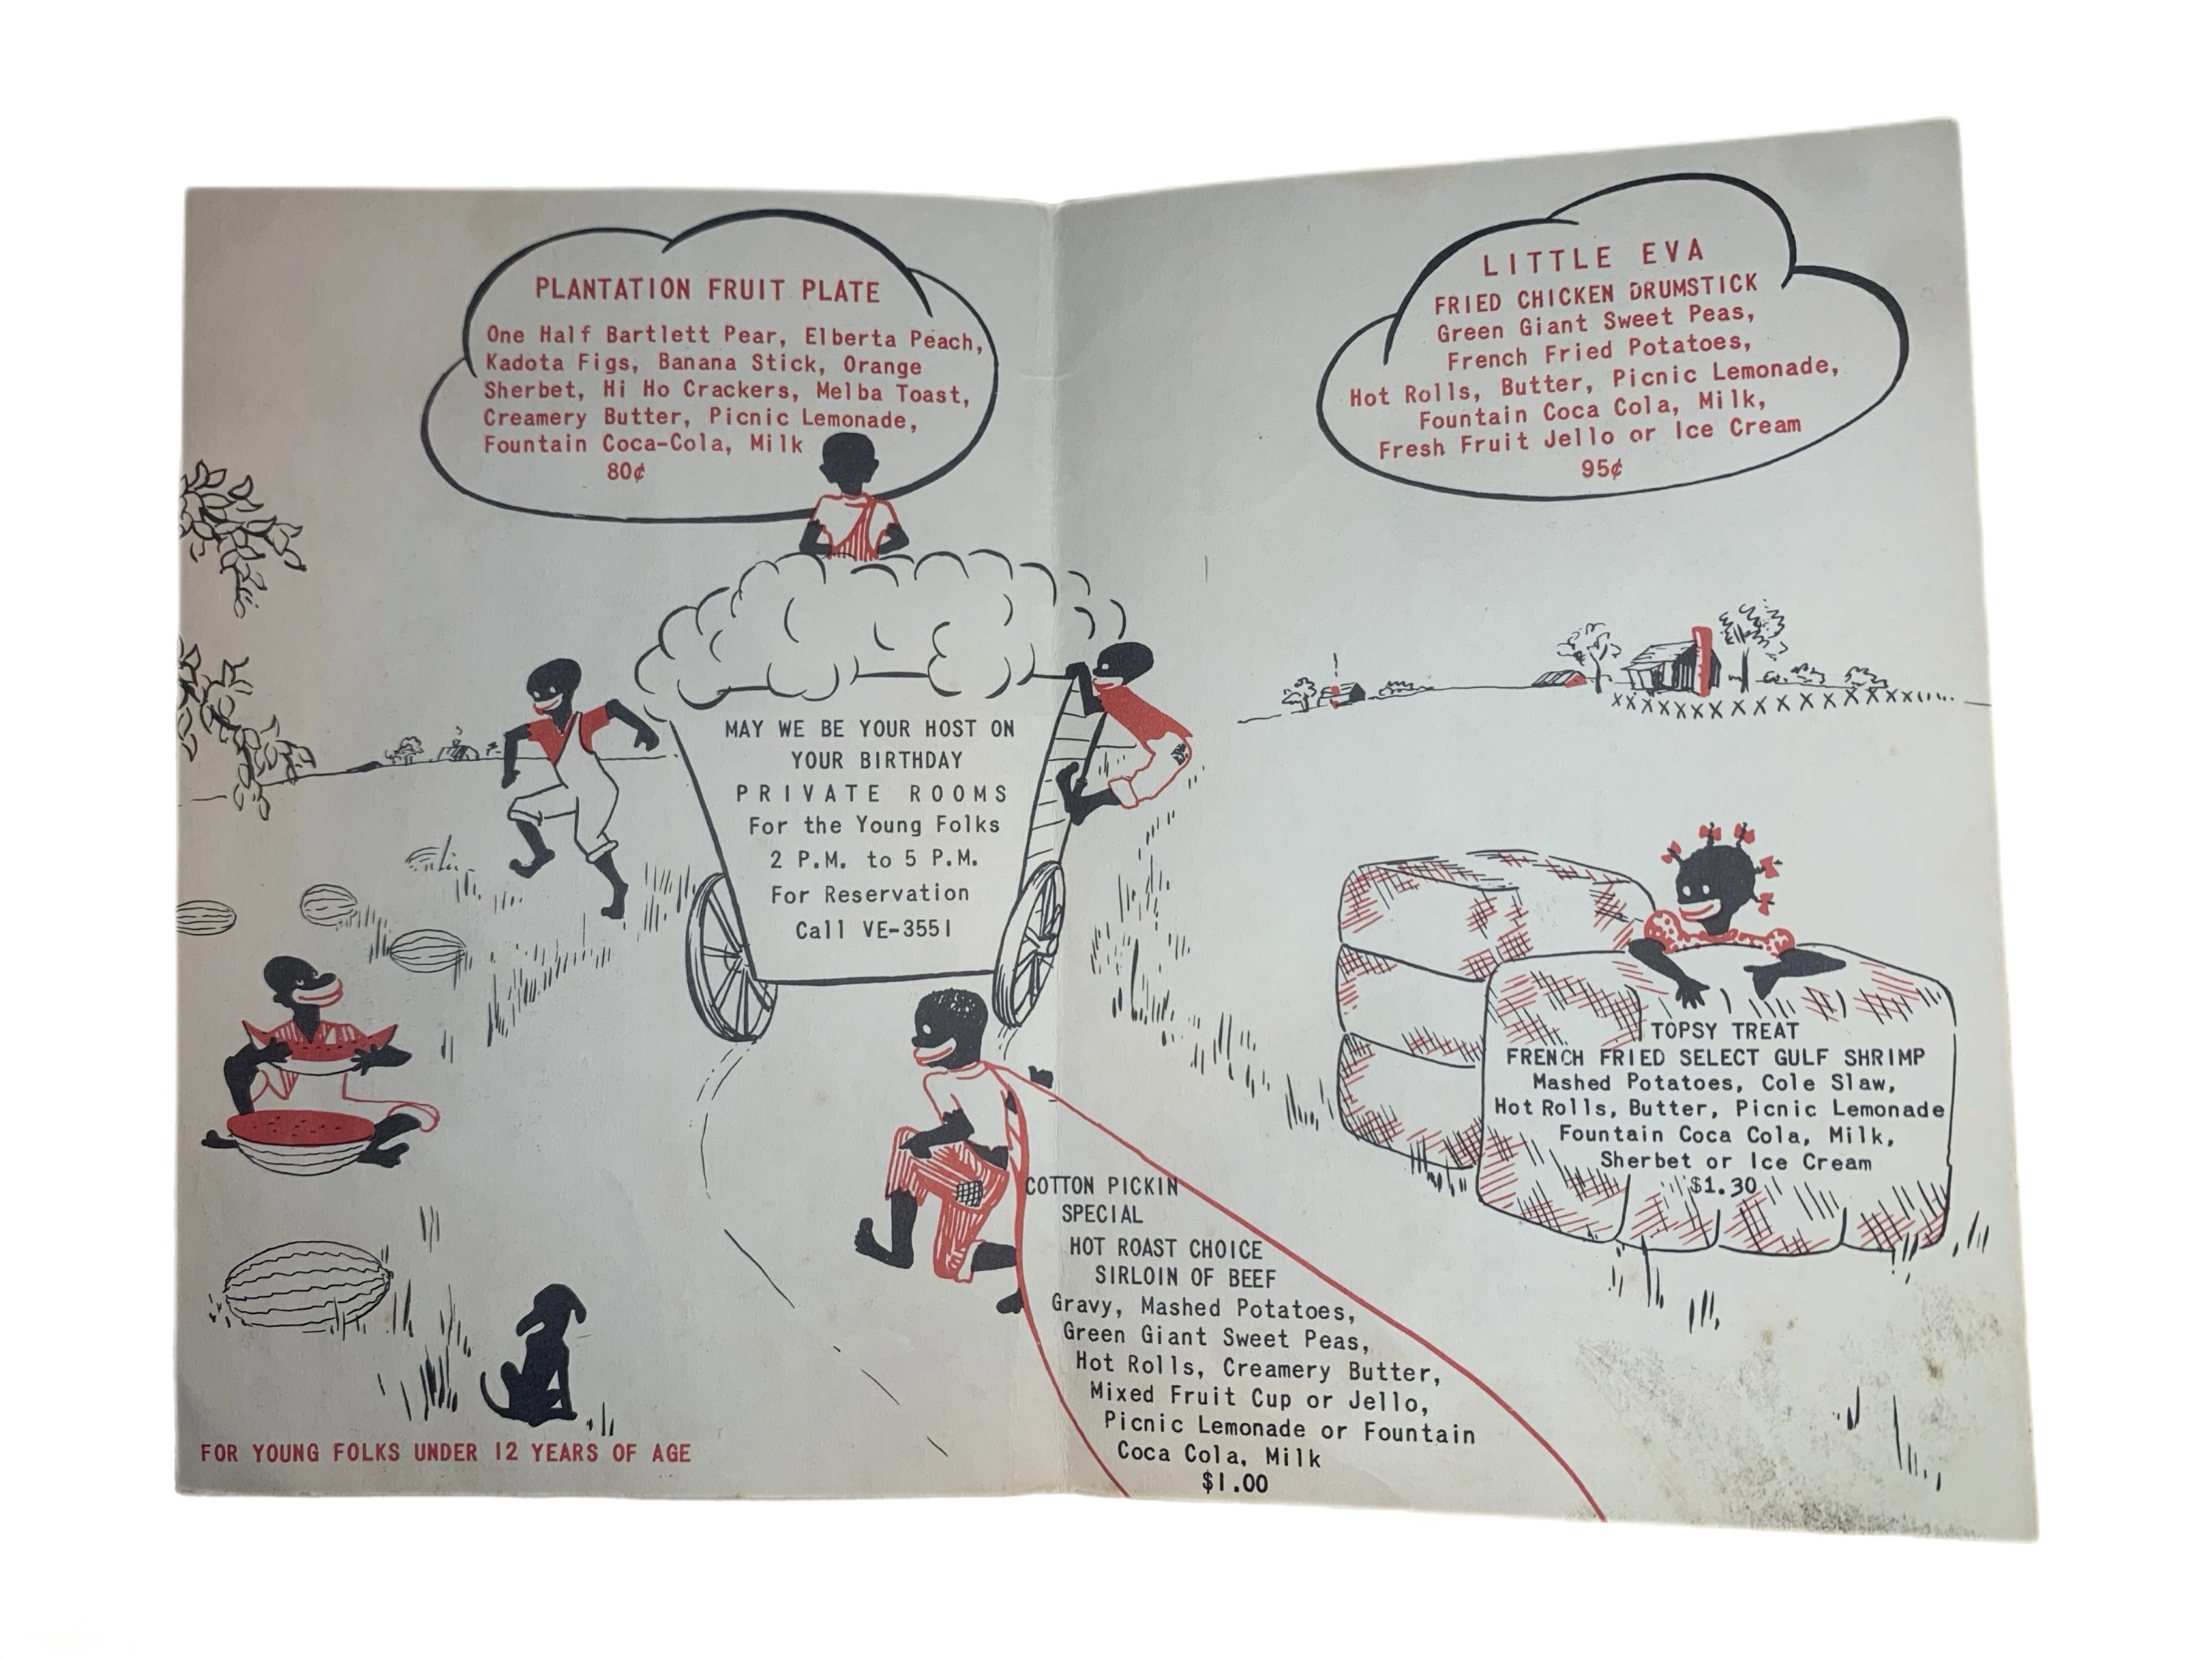 PLANTATION FRUIT PLATE
One Half Bartlett Pear, Elberta Peach,
Kadota Figs, Banana Stick, Orange
Sherbet, Hi Ho Crackers, Melba Toast,
Creamery Butter, Picnic Lemonade,
Fountain Coca-Cola, Milk
80¢
MAY WE BE YOUR HOST ON
YOUR BIRTHDAY
PRIVATE ROOMS
For the Young Folks
2 P.M. to 5 P.M.
For Reservation
Call VE-3551
FOR YOUNG FOLKS UNDER 12 YEARS OF AGE
LITTLE EVA
FRIED CHICKEN DRUMSTICK
Green Giant Sweet Peas,
French Fried Potatoes,
Hot Rolls, Butter, Picnic Lemonade,
Fountain Coca Cola, Milk,
Fresh Fruit Jello or Ice Cream
95¢
TOPSY TREAT
FRENCH FRIED SELECT GULF SHRIMP
Mashed Potatoes, Cole Slaw,
Hot Rolls, Butter, Picnic Lemonade
Fountain Coca Cola, Milk,
Sherbet or Ice Cream
$1.30
COTTON PICKIN
SPECIAL
HOT ROAST CHOICE
SIRLOIN OF BEEF
Gravy, Mashed Potatoes,
Green Giant Sweet Peas,
Hot Rolls, Creamery Butter,
Mixed Fruit Cup or Jello,
Picnic Lemonade or Fountain
Coca Cola, Milk
$1.00